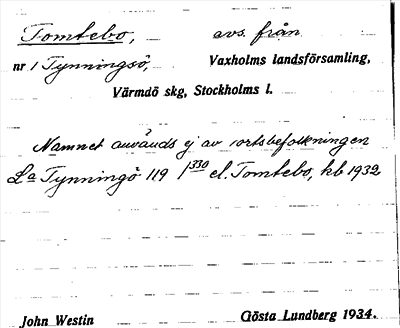 Tomtebo, avs. från
nr 1 Tynningsö, Vaxholms landsförsamling,
Värmdö skg, Stockholms l.
Namnet användes ej av ortsbefolkningen
La Tynningö 119 1330 el. Tomtebo, kb 1932
John Westin Gösta Lundberg 1934.